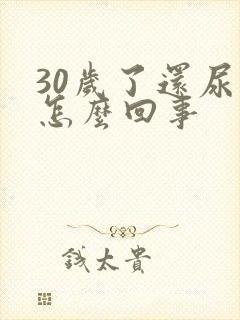 30歲了還尿
怎麼回事
錢太貴